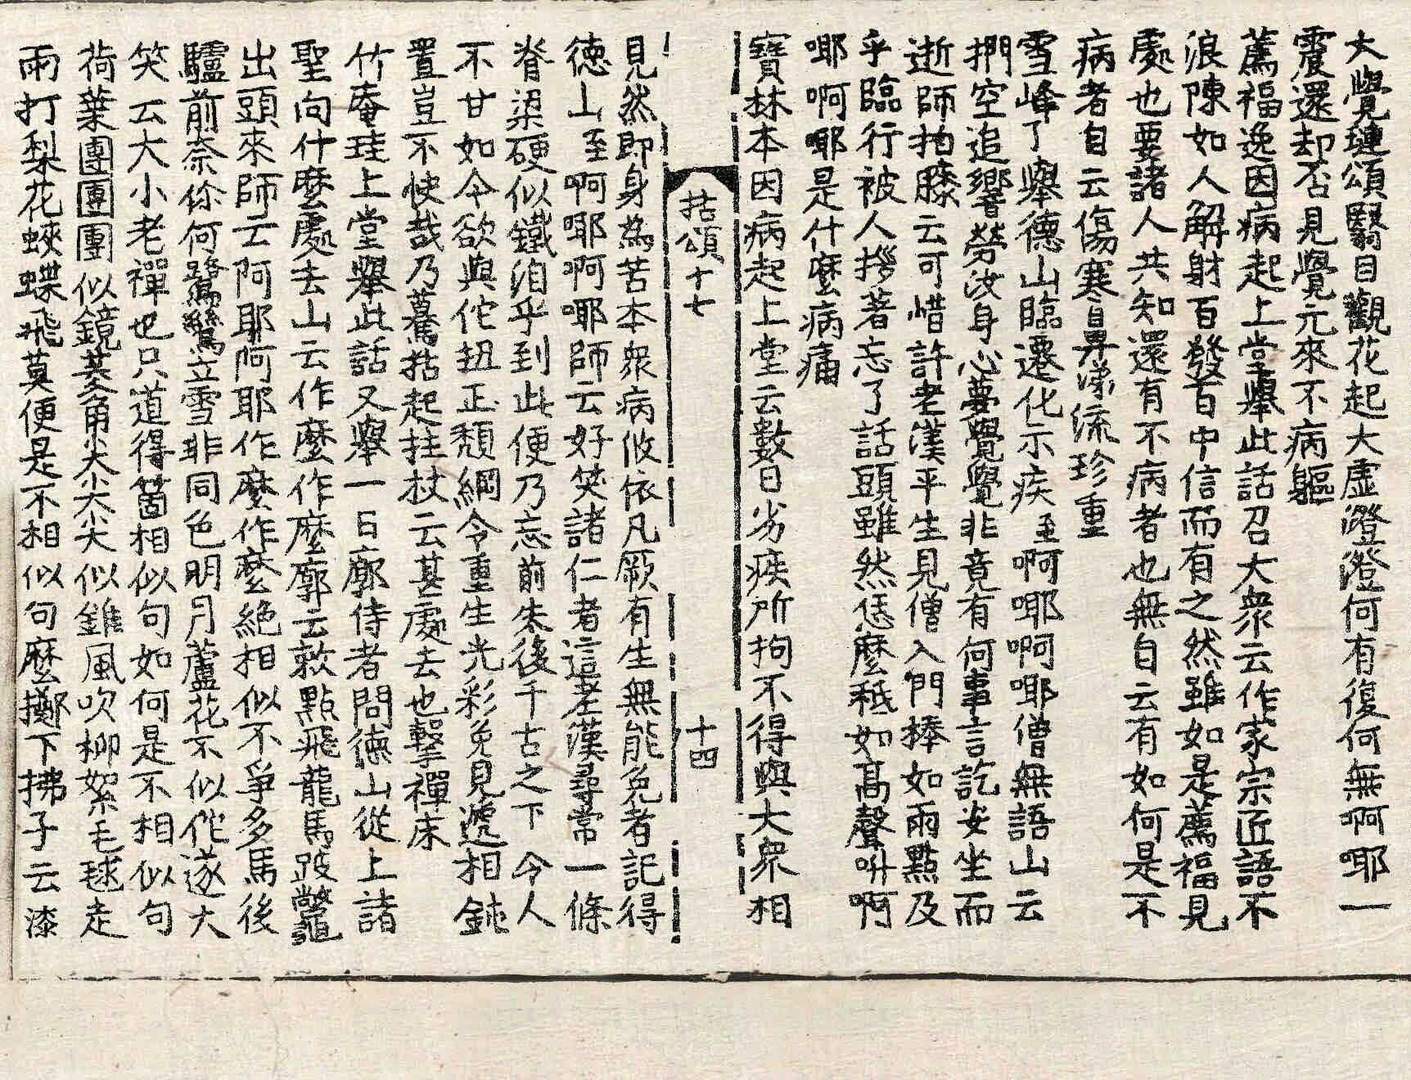 大覺璉頌翳目觀花起大虛澄澄何有復何無啊㖿一
震還却否見覺元來不病軀
薦福逸因病起上堂擧此話召大衆云作家宗匠語不
浪陳如人解射百發百中信而有之然雖如是薦福見
處也要諸人共知還有不病者也無自云有如何是不
病者自云傷寒鼻涕流珍重
雪峰了擧德山臨遷化示疾至啊㖿啊㖿僧無語山云
捫空追響勞汝身心夢覺覺非竟有何事言訖安坐而
逝師拍膝云可惜許老漢平生見僧入門捧如雨點及
乎臨行被人拶著忘了話頭雖然恁麼秪如高聲呌啊
㖿啊㖿是什麼病痛
寶林本因病起上堂云數日劣疾所拘不得與大衆相
拈頌十七 十四
見然卽身爲苦本衆病攸依凡厥有生無能免者記得
德山至啊㖿啊㖿師云好笑諸仁者這老漢尋常一條
脊梁硬似鐵洎乎到此便乃忘前失後千古之下令人
不甘如今欲與佗扭正頹綱令重生光彩免見遞相鈍
置豈不快哉乃驀拈起拄杖云甚處去也擊禪床
竹庵珪上堂擧此話又擧一日廓侍者問德山從上諸
聖向什麼處去山云作麼作麼廓云敕點飛龍馬跛鼈
出頭來師云阿耶阿耶作麼作麼絶相似不爭多馬後
驢前奈你何鷺鷥立雪非同色明月蘆花不似佗遂大
笑云大小老禪也只道得箇相似句如何是不相似句
荷葉團團團似鏡菱角尖尖尖似錐風吹柳絮毛毬走
雨打梨花蛺蝶飛莫便是不相似句麼擲下拂子云漆